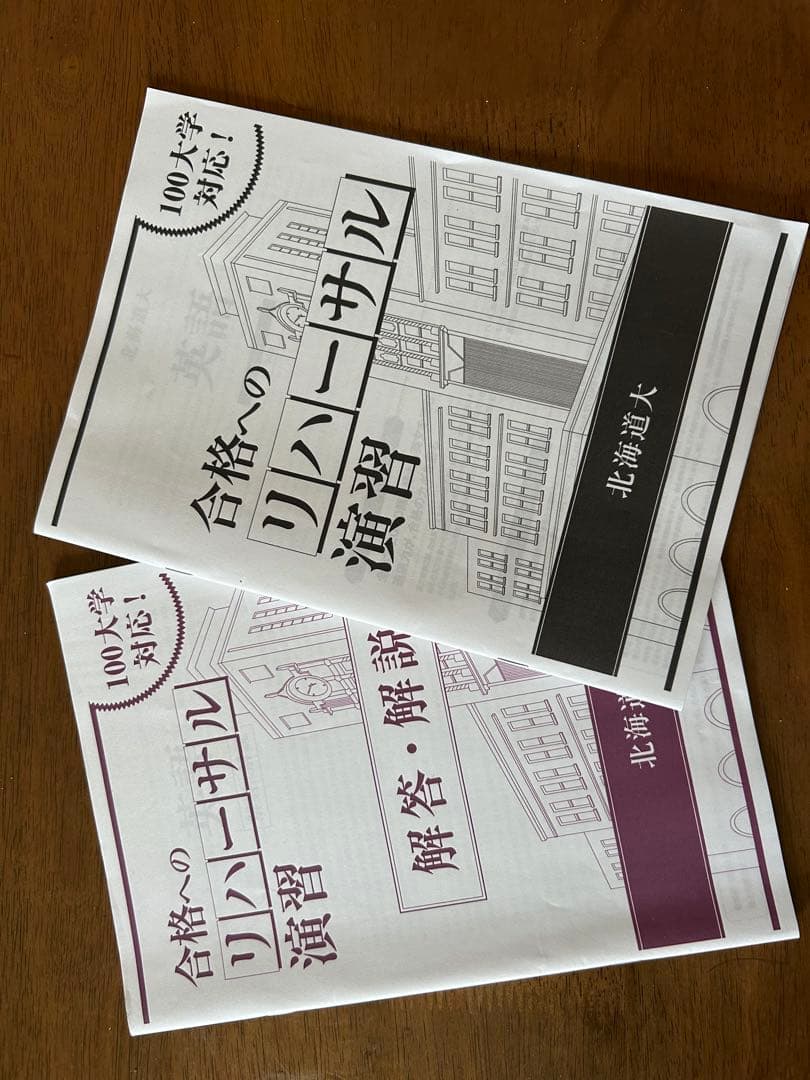 100大学
対応！
合格への
リハーサル
演習
北海道大
英語
100大学
対応！
合格への
リハーサル
演習
解答・解説
北海道